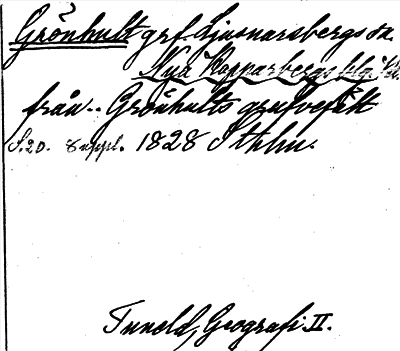 Grönhult grf. Ljusnarsbergs sn.
Nya Kopparbergs
från.. Grönhults grufvefält
S. 20. 8 uppl. 1828 Sthlm.
Tuneld, Geografi II.